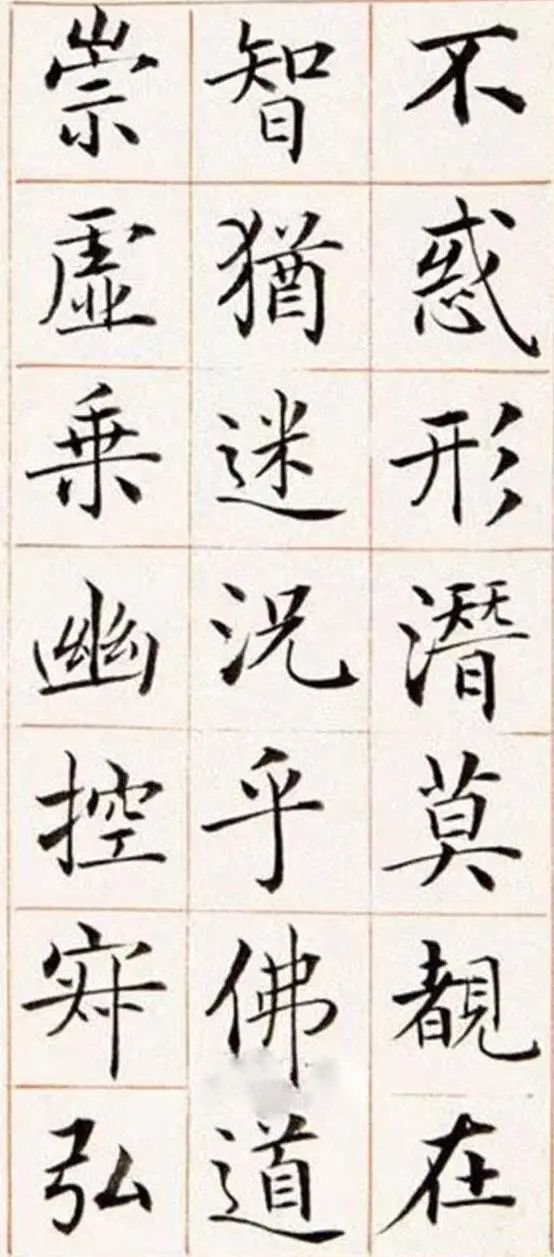 不惑形潛莫覩在
智猶迷況乎佛道
崇虛乗幽控寂弘